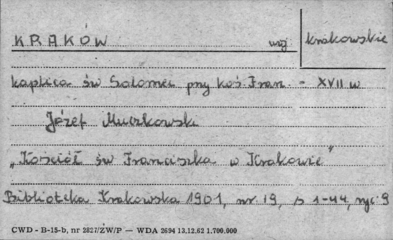 KRAKÓW woj. krakowskie
kaplica św Salomei przy koś. Fran. - XVII w
Józef Muczkowski
„Kościół św Franciszka w Krakowie"
Biblioteka Krakowska 1901, nr. 19, s 1-44, ryc. 9
CWD - B-15-b, nr 2827/ZW/P — WDA 2694 13.12.62 1.700.000